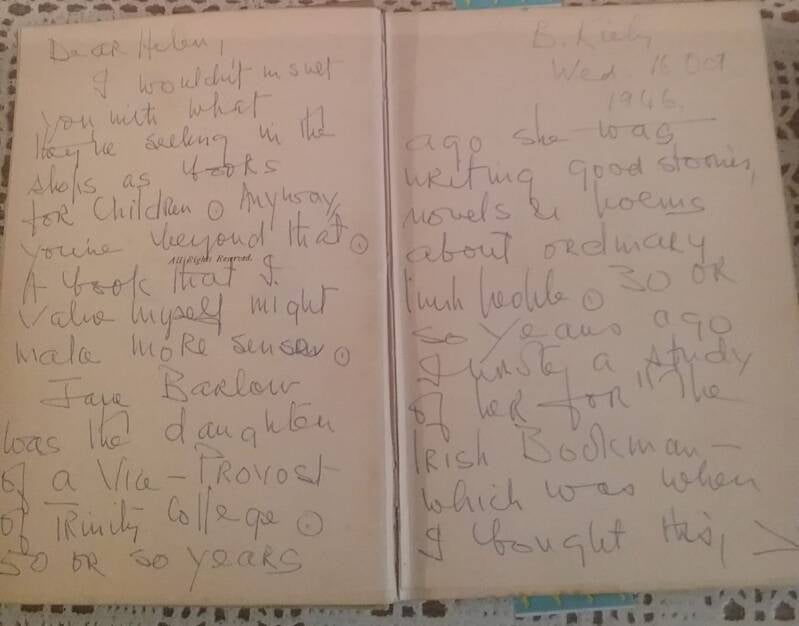 Dear Helen,
I wouldn't insult
you with what
they're selling in the
shops as books
for children. Anyway,
you're beyond that.
All Rights Reserved.
A book that I
value myself might
make more sense.
Jane Barlow
was the daughter
of a Vice-Provost
of Trinity College.
50 or so years
B. Kiely
Wed. 16 Oct
1946.
ago she was
writing good stories,
novels & poems
about ordinary
Irish people. 30 or
so years ago
I wrote a study
of her for "The
Irish Bookman —
which was when
I bought this,